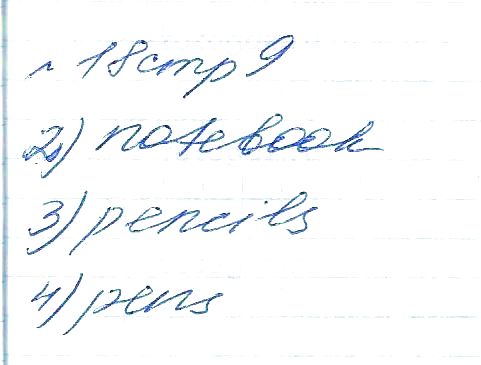 18 стр 9
2) notebook
3) pencils
4) pens